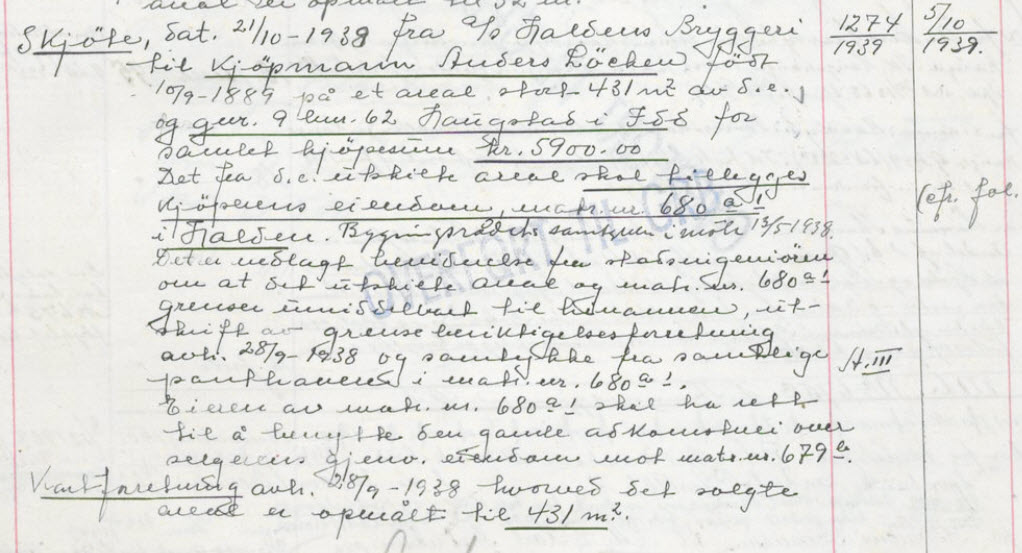 areal er opmålt til 52 m².
Skjöte, dat. 21/10-1938 fra a/s Haldens Bryggeri 1274/1939 5/10 1939.
til Kjöpmann Anders Löchen, född
10/9-1889 på et areal stort 431 m² av d.e.,
og gnr. 9 bnr. 62 Haugstad i Idd for
samlet kjöpesum kr. 5900.00
Det fra d.e. utskilte areal skal tillegges
kjöperens eiendom, matr. nr. 680 a 1 (cfr. fol.
i Halden. Bygningsrådets samtykke i möte 13/5-1938.
Det er vedlagt bevidnelse fra stadsingeniören
om at det utskilte areal og matr. nr. 680 a 1
grenser umiddelbart til hinannen, ut-
skrift av grenseberiktigelsesforretning
avh. 28/9-1938 og samtykke fra samtlige A.III
panthavere i matr. nr. 680 a 1.
Eieren av matr. nr. 680 a 1 skal ha rett
til å benytte den gamle adkomstvei over
selgerens gjenv. eiendom mot matr. nr. 679 b.
Kartforretning avh. 28/9-1938 hvorved det solgte
areal er opmålt til 431 m².
OVERFØRT TIL GRB